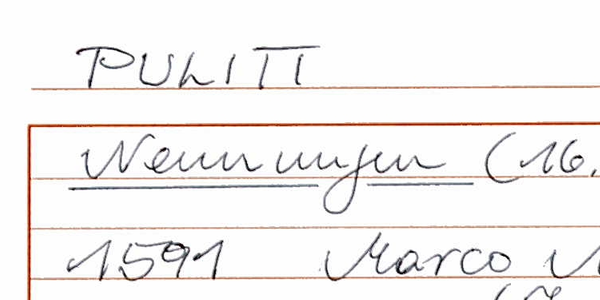 PULITI
Nennungen (16.
1591 Marco